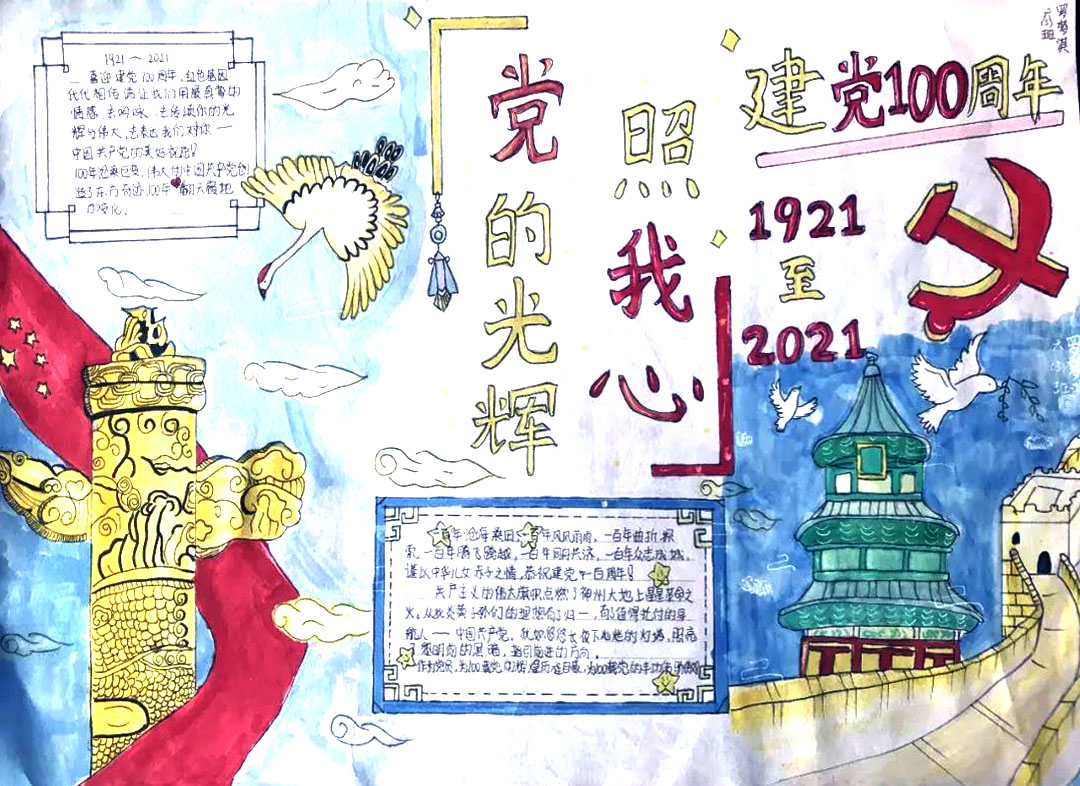 党的光辉
照我心
建党100周年
1921
至
2021
1921～2021
喜迎建党100周年，红色基因
代代相传，请让我们用最真挚的
情感，去吟咏，去传颂你的光
辉与伟大，去表达我们对你——
中国共产党的美好祝福！
100年沧桑巨变，伟大的中国共产党创
造了东方奇迹，100年翻天覆地
的变化。
百年沧海桑田，百年风风雨雨，一百年曲折探
索，一百年腾飞跨越，一百年同舟共济，一百年众志成城，
谨以中华儿女赤子之情，恭祝建党一百周年！
共产主义的伟大旗帜点燃了神州大地上星星革命之
火，从此炎黄子孙们的理想有了归一，而值得托付的导
航人——中国共产党，犹如悠悠长夜下的灯塔，照亮
了前方的黑暗，指引前进的方向。
为100载党的辉煌历程自豪，为100载党的丰功